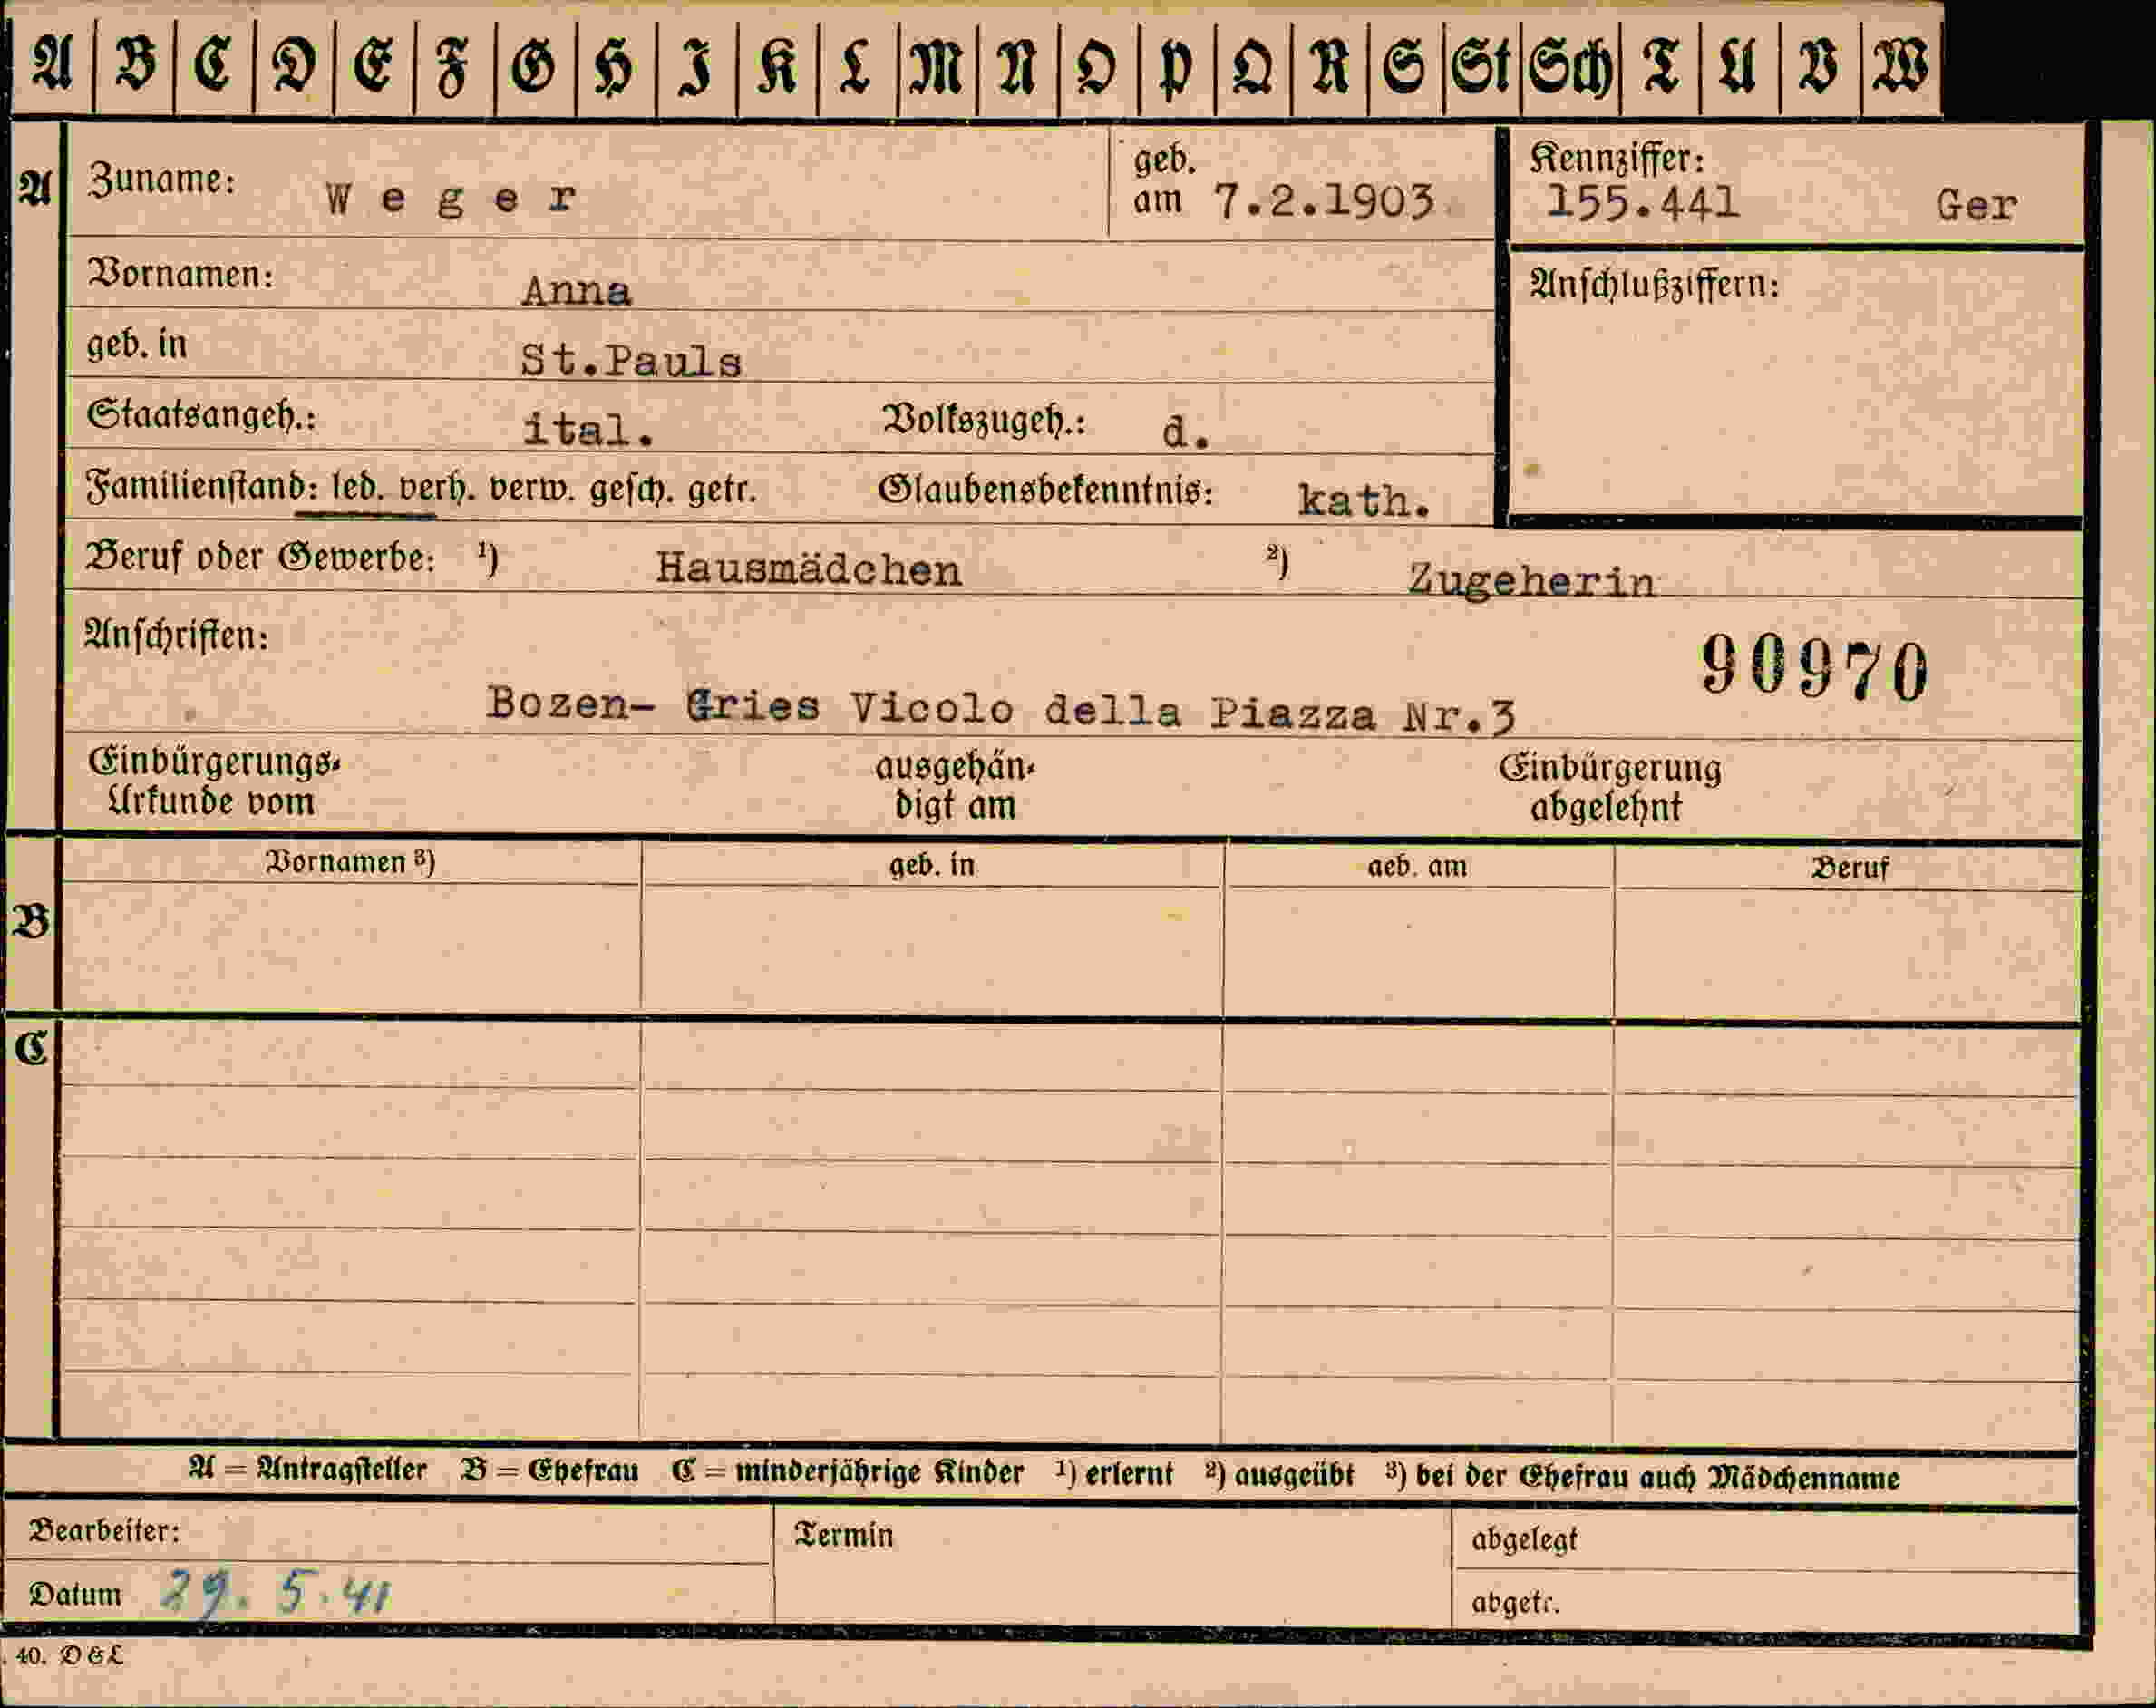 A B C D E F G H I K L M N O P Q R S St Sch T U V W
A Zuname: Weger geb. am 7.2.1903 Kennziffer: 155.441 Ger
Vornamen: Anna Anschlußziffern:
geb. in St.Pauls
Staatsangeh.: ital. Volkszugeh.: d.
Familienstand: led. verh. verw. gesch. getr. Glaubensbekenntnis: kath.
Beruf oder Gewerbe: ¹) Hausmädchen ²) Zugeherin
Anschriften: 90970
Bozen- Gries Vicolo della Piazza Nr.3
Einbürgerungs- ausgehän- Einbürgerung
Urkunde vom digt am abgelehnt
Vornamen ³) geb. in geb. am Beruf
B
C
A = Antragsteller B = Ehefrau C = minderjährige Kinder ¹) erlernt ²) ausgeübt ³) bei der Ehefrau auch Mädchenname
Bearbeiter: Termin abgelegt
Datum 29. 5. 41 abgetr.
40. D & L